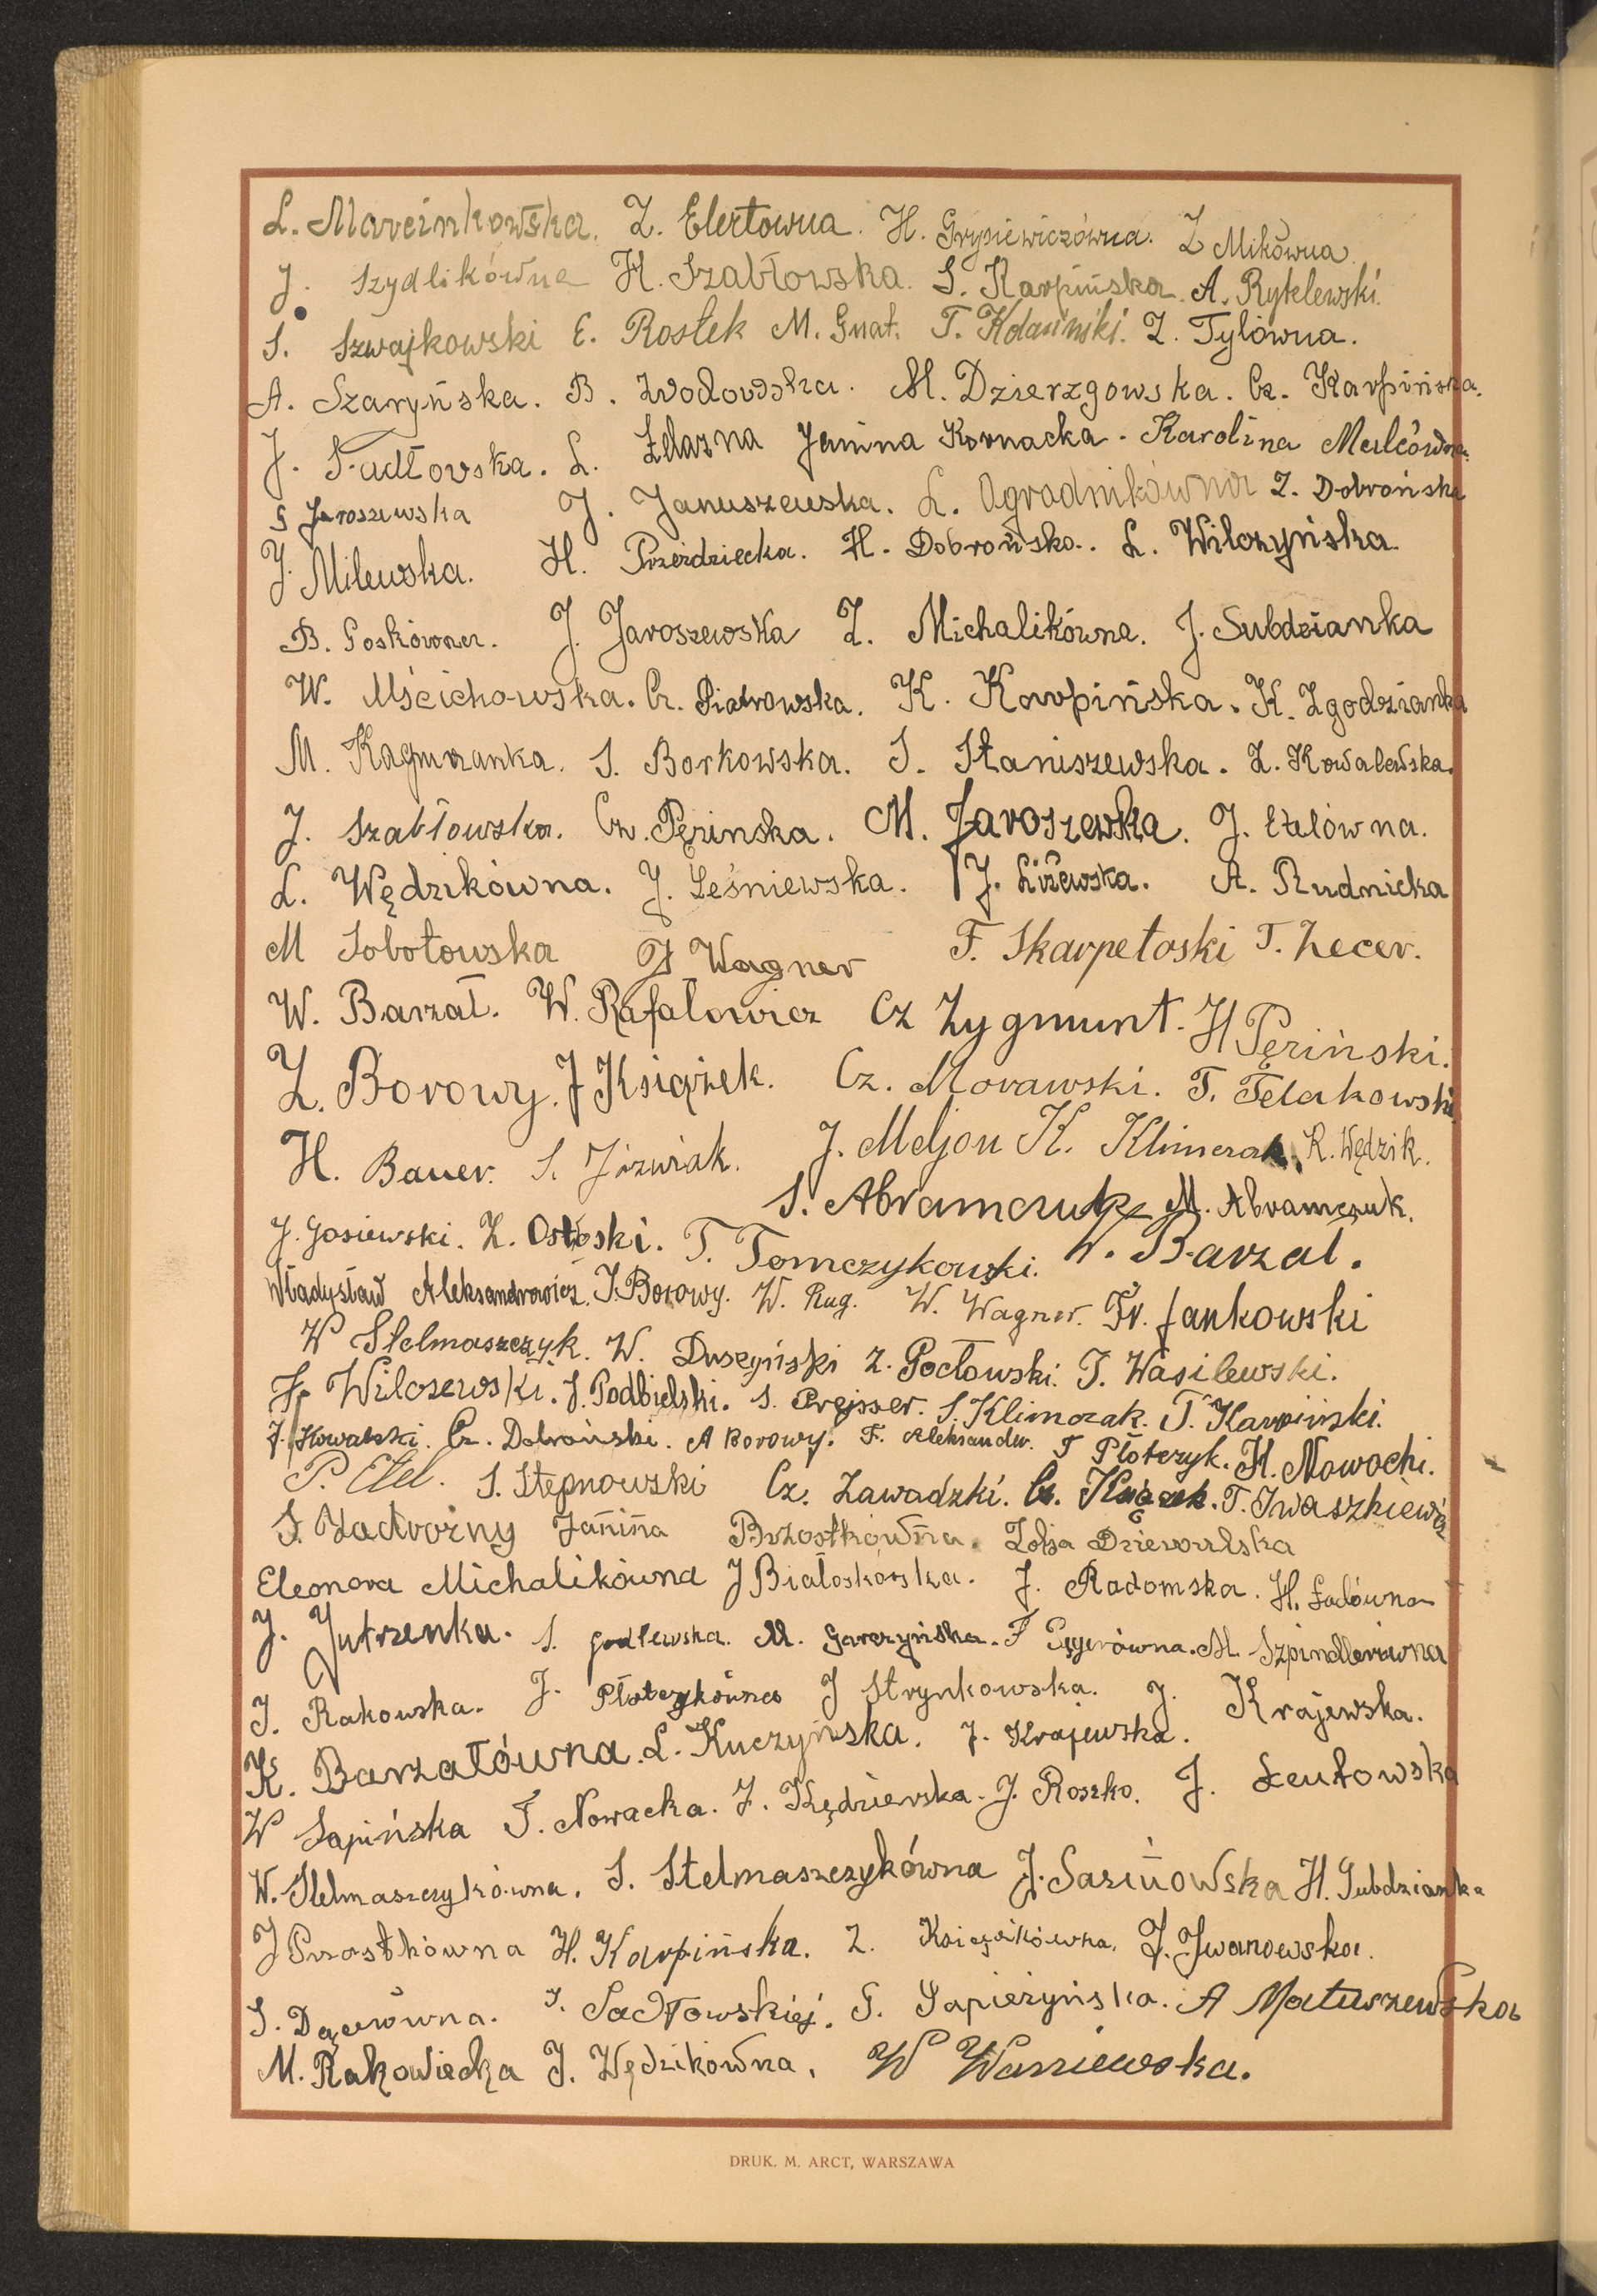 L. Marcinkowska. Z. Elertowna. H. Grysiewiczówna. Z Mikówna.
J. Szydlikówna H. Szabłowska. S. Karpińska. A. Rytelewski.
S. Szwajkowski E. Rostek M. Gnat. T. Z. Tylówna.
A. Szaryńska. B. Wodowska. M. Dzierzgowska. Cz. Karpińska.
J. Sadłowska. L. Żelazna Janina Kornacka. Karolina Malcówna.
S Jaroszewska J. Januszewska. L. Ogrodnikówna Z. Dobrońska
J. Milewska. H. Przeździecka. H. Dobrońska. L. Wilczyńska.
B. Goskówna. J. Jaroszewska Z. Michalikówna. J. Subdzianka
W. Mścichowska. Cz. Piotrowska. K. Karpińska. K. Zgodzianka
M. S. Borkowska. S. Staniszewska. Z. Kowalewska.
J. Szabłowska. Cz. Pęzinska. M. Jaroszewska. J. Etelówna.
L. Wędzikówna. J. Leśniewska. J. Liżewska. A. Rudnicka
M Sobotowska J Wagner F. Skarpetoski T. Zecer.
W. Barzał. W. Rafałowicz Cz Zygmunt. H Pęziński.
Z. Borowy. J Książek. Cz. Morawski. T. Felakowski
H. Bauer. S. Józwiak. J. Meljon K. Klimczak. R. Wędzik.
S. Abramczuk M. Abramczuk.
J. Gosiewski. Z. Ostoski. T. Tomczykowski. W. Barzał.
Władysław Aleksandrowicz. J. Borowy. W. Rug. W. Wagner. Fr. Jankowski
W Stelmaszczyk. W. Duszyński Z. Pocłowski. T. Wasilewski.
Fr Wilczewski. J. Podbielski. S. Prejsser. S. Klimczak. T. Karpiński.
J. Kowalski. Cz. Dobroński. A Borowy. F. Aleksandr. T Płotczyk. H. Nowochi.
P. Etel. S. Stępnowski Cz. Zawadzki. Cz. Książek. T. Iwaszkiewicz
S. Zadworny Janina Brzostkówna. Zofja Dziewulska
Eleonora Michalikówna J Białoskórska. J. Radomska. H. Ładówna
J. Jutrzenka. S. Godlewska. M. Garczyńska. F M. Szpindlerówna
J. Rakowska. J. Płotczykówna J Strynkowska. J. Krajewska.
K. Barzałówna. L. Kuczyńska. J. Krajewska.
W Łapińska T. Nowacka. J. Kędzierska. J. Roszko. J. Łentowska
W. Stelmaszczykówna. S. Stelmaszczykówna J. Sasinowska H. Subdzianka
J Przostkówna H. Karpińska. Z. Książkówna. J. Iwanowska.
S. J. Sadłowskiej. S. Łapieżyńska. A Matuszewska
M. Rakowiecka J. Wędzikówna. W
DRUK. M. ARCT, WARSZAWA